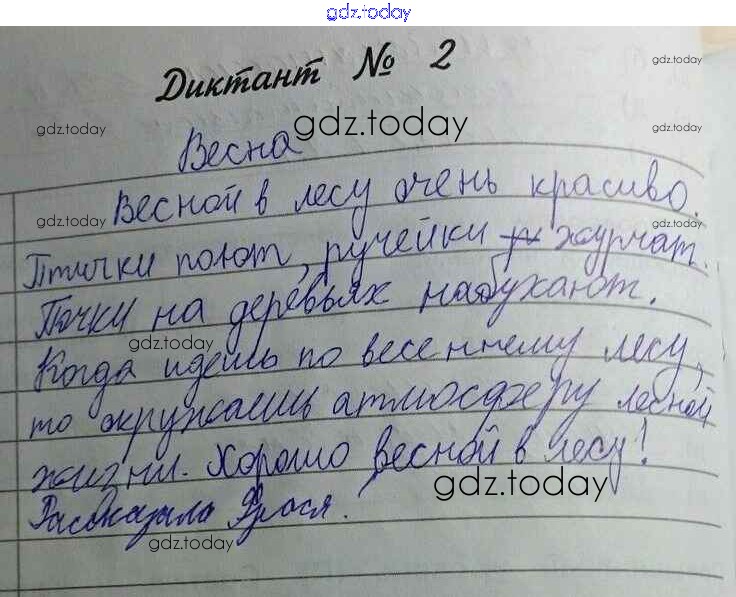 gdz.today
Диктант № 2
gdz.today
gdz.today gdz.today gdz.today
Весна
Весной в лесу очень красиво.
gdz.today gdz.today
Птички поют, ручейки журчат.
Почки на деревьях набухают.
gdz.today
Когда идешь по весеннему лесу,
то окружаешь атмосферу лесной
жизни. Хорошо весной в лесу!
gdz.today
Рассказала Фрося.
gdz.today